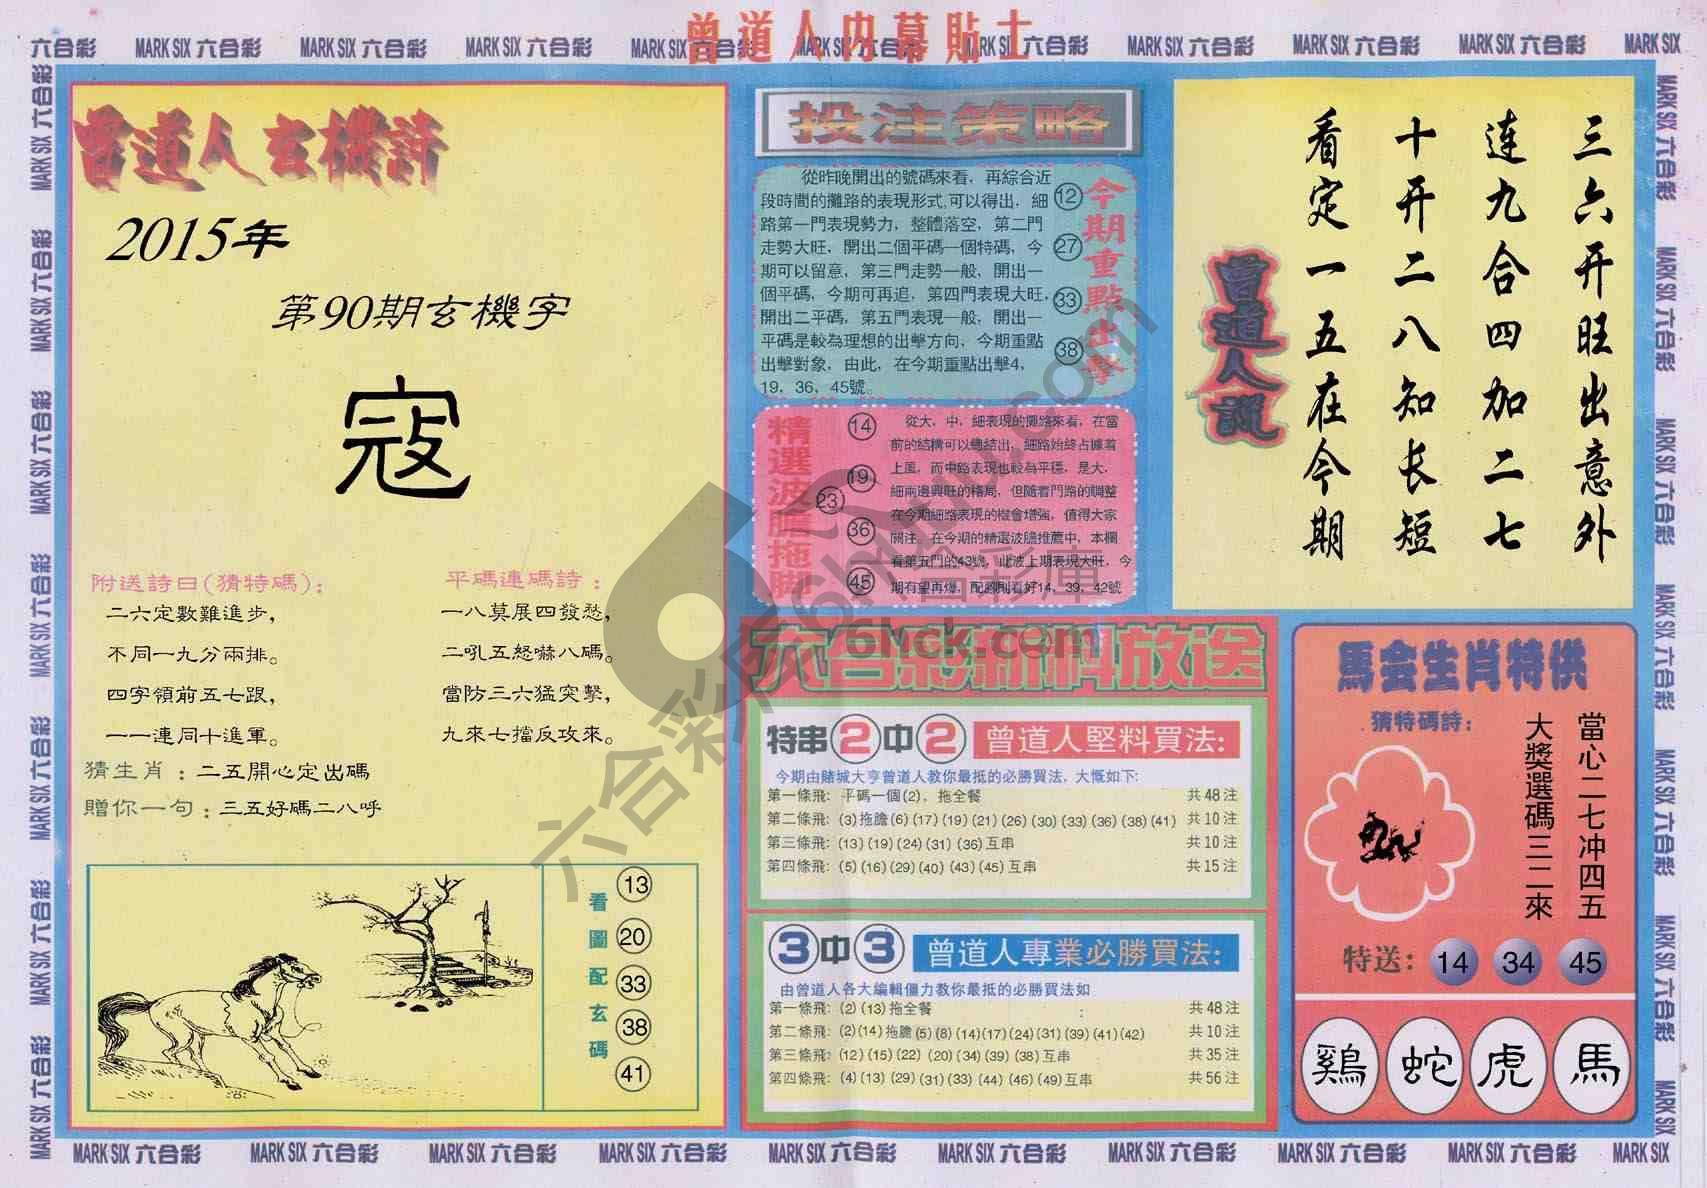 曾道人內幕貼士
六合彩 MARK SIX 六合彩 MARK SIX 六合彩 MARK SIX 六合彩 MARK SIX 六合彩 MARK SIX 六合彩 MARK SIX 六合彩 MARK SIX 六合彩 MARK SIX 六合彩 MARK SIX 六合彩 MARK SIX
曾道人玄機詩
2015年
第90期玄機字
寇
附送詩曰(猜特碼):
二六定數難進步,
不同一九分兩排。
四字領前五七跟,
一一連同十進軍。
平碼連碼詩:
一八莫展四發愁,
二吼五怒嚇八碼。
當防三六猛突擊,
九來七擋反攻來。
猜生肖:二五開心定出碼
贈你一句:三五好碼二八呼
看圖配玄碼
13
20
33
38
41
投注策略
從昨晚開出的號碼來看，再綜合近
段時間的攤路的表現形式,可以得出，細
路第一門表現勢力，整體落空，第二門
走勢大旺，開出二個平碼一個特碼，今
期可以留意，第三門走勢一般，開出一
個平碼，今期可再追，第四門表現大旺，
開出二平碼，第五門表現一般，開出一
平碼是較為理想的出擊方向，今期重點
出擊對象，由此，在今期重點出擊4，
19，36，45號。
今期重點出擊
12
27
33
38
精選波膽拖腳
14
19
23
36
45
從大，中，細表現的攤路來看，在當
前的結構可以總結出，細路始終占據着
上風，而中路表現也較為平穩，是大，
細兩邊興旺的格局，但隨着門路的調整
在今期細路表現的機會增強，值得大家
關注。在今期的精選波膽推薦中，本欄
看第五門的43號，此波上期表現大旺，今
期有望再爆，配腳則看好14，39，42號
六合彩新料放送
特串2中2 曾道人堅料買法:
今期由賭城大亨曾道人教你最抵的必勝買法，大慨如下:
第一條飛: 平碼一個(2)，拖全餐 共48注
第二條飛: (3)拖膽(6)(17)(19)(21)(26)(30)(33)(36)(38)(41) 共10注
第三條飛: (13)(19)(24)(31)(36)互串 共10注
第四條飛: (5)(16)(29)(40)(43)(45)互串 共15注
3中3 曾道人專業必勝買法:
由曾道人各大編輯僵力教你最抵的必勝買法如
第一條飛: (2)(13)拖全餐 : 共48注
第二條飛: (2)(14)拖膽(5)(8)(14)(17)(24)(31)(39)(41)(42) 共10注
第三條飛: (12)(15)(22)(20)(34)(39)(38)互串 共35注
第四條飛: (4)(13)(29)(31)(33)(44)(46)(49)互串 共56注
三六开旺出意外
连九合四加二七
十开二八知长短
看定一五在今期
曾道人說
馬会生肖特供
猜特碼詩:
當心二七冲四五
大獎選碼三二來
特送: 14 34 45
鷄 蛇 虎 馬
六合彩库6htuku.com
六合彩库
6hck.com
MARK SIX 六合彩 MARK SIX 六合彩 MARK SIX 六合彩 MARK SIX 六合彩 MARK SIX 六合彩 MARK SIX 六合彩 MARK SIX 六合彩 MARK SIX 六合彩 MARK SIX 六合彩 MARK SIX